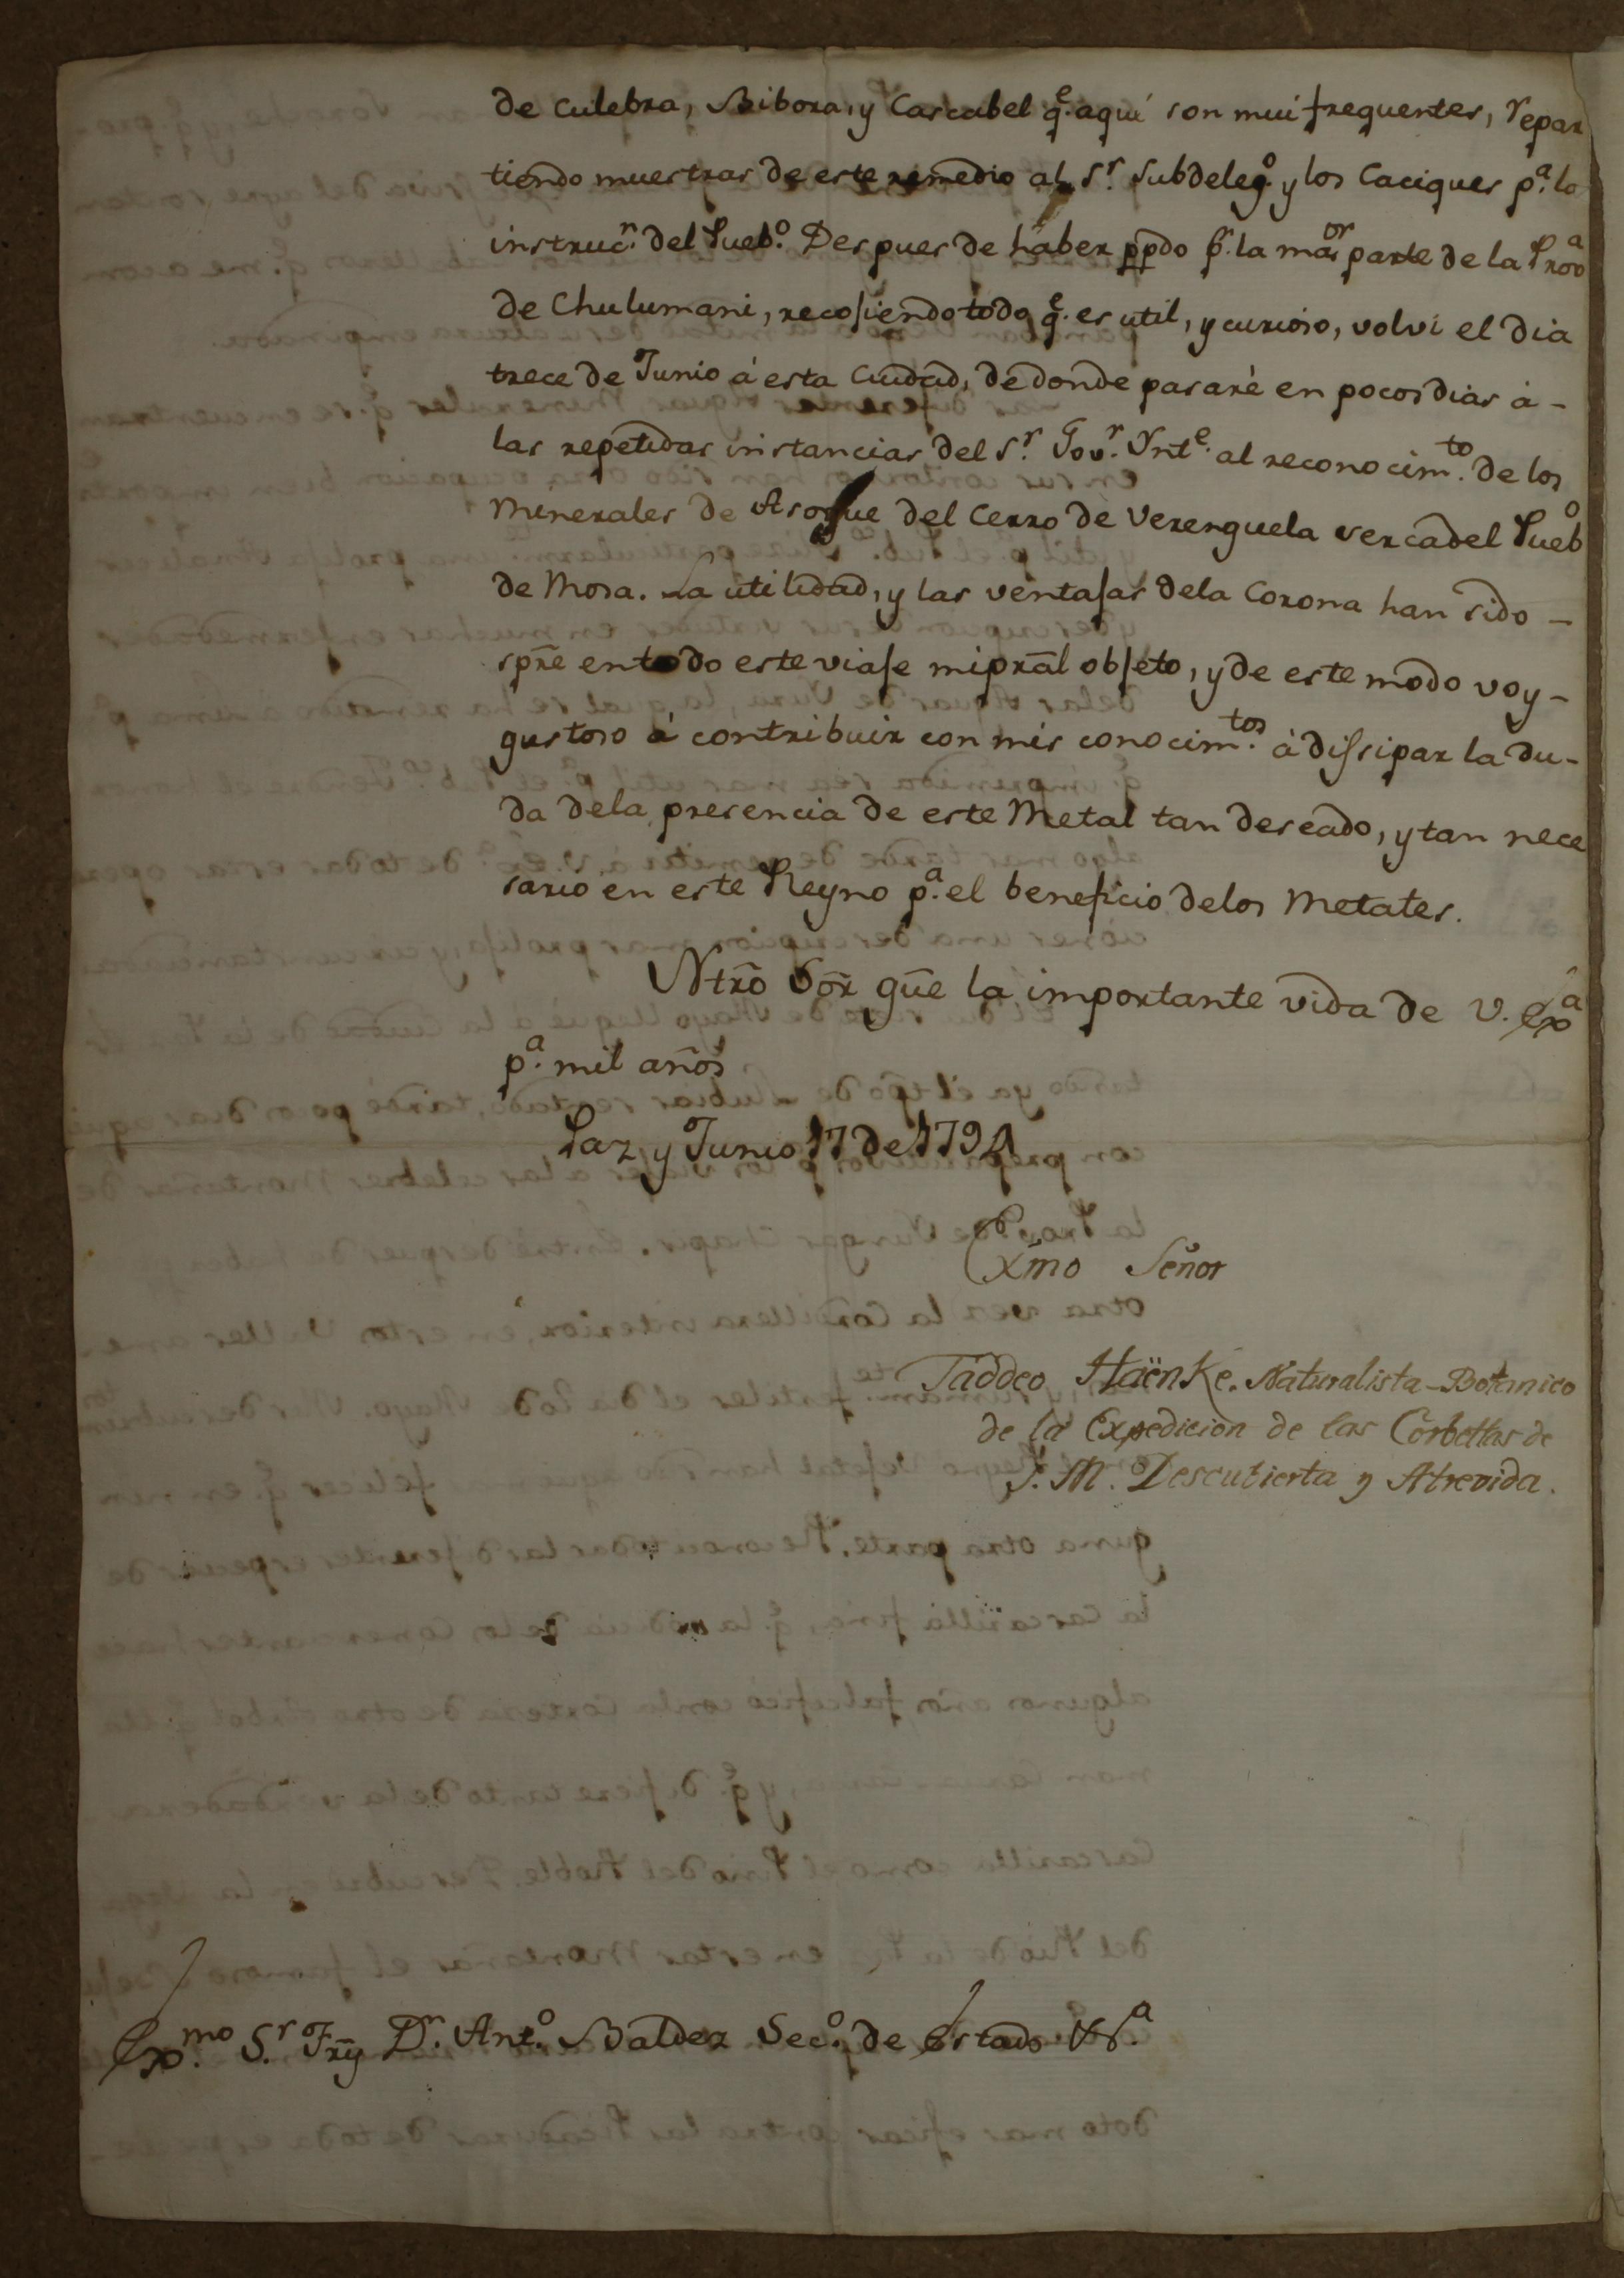 de culebra, Bibora, y Cascabel q.e aqui son mui frequentes, repar
tiendo muestras de este remedio al S.r Subdeleg.o y los Caciques p.a la
instruc.n del Pueb.o Despues de haber ppdo p.r la maor parte de la Prov.a
de Chulumani, recojiendo todo q.e es util, y curioso, volvi el dia
trece de Junio á esta Ciudad, de donde pasaré en pocos dias á -
las repetidas instancias del S.r Gov.r Ynt.e al reconocim.to de los
Minerales de Asogue del Cerro de Verenguela cerca del Pueb.o
de Mosa. La utilidad, y las ventajas dela Corona han sido -
spre̅ en todo este viaje mi pra̅l objeto, y de este modo voy -
gustoso á contribuir con mis conocim.tos á dissipar la du-
da dela presencia de este Metal tan deseado, y tan nece
sario en este Reyno p.a el beneficio delos Metales.
Ntro̅ Sor̅ gue̅ la importante vida de V. Ex.a
p.a mil años
Paz y Junio 17 de 1794
Exmo Señor
Taddeo Haënke. Naturalista-Botanico
de la Expedicion de las Corbettas de
S. M. Descubierta y Atrevida.
Ex.mo S.r Fry̅ D.r Ant.o Baldez Sec.o de Estado &.a